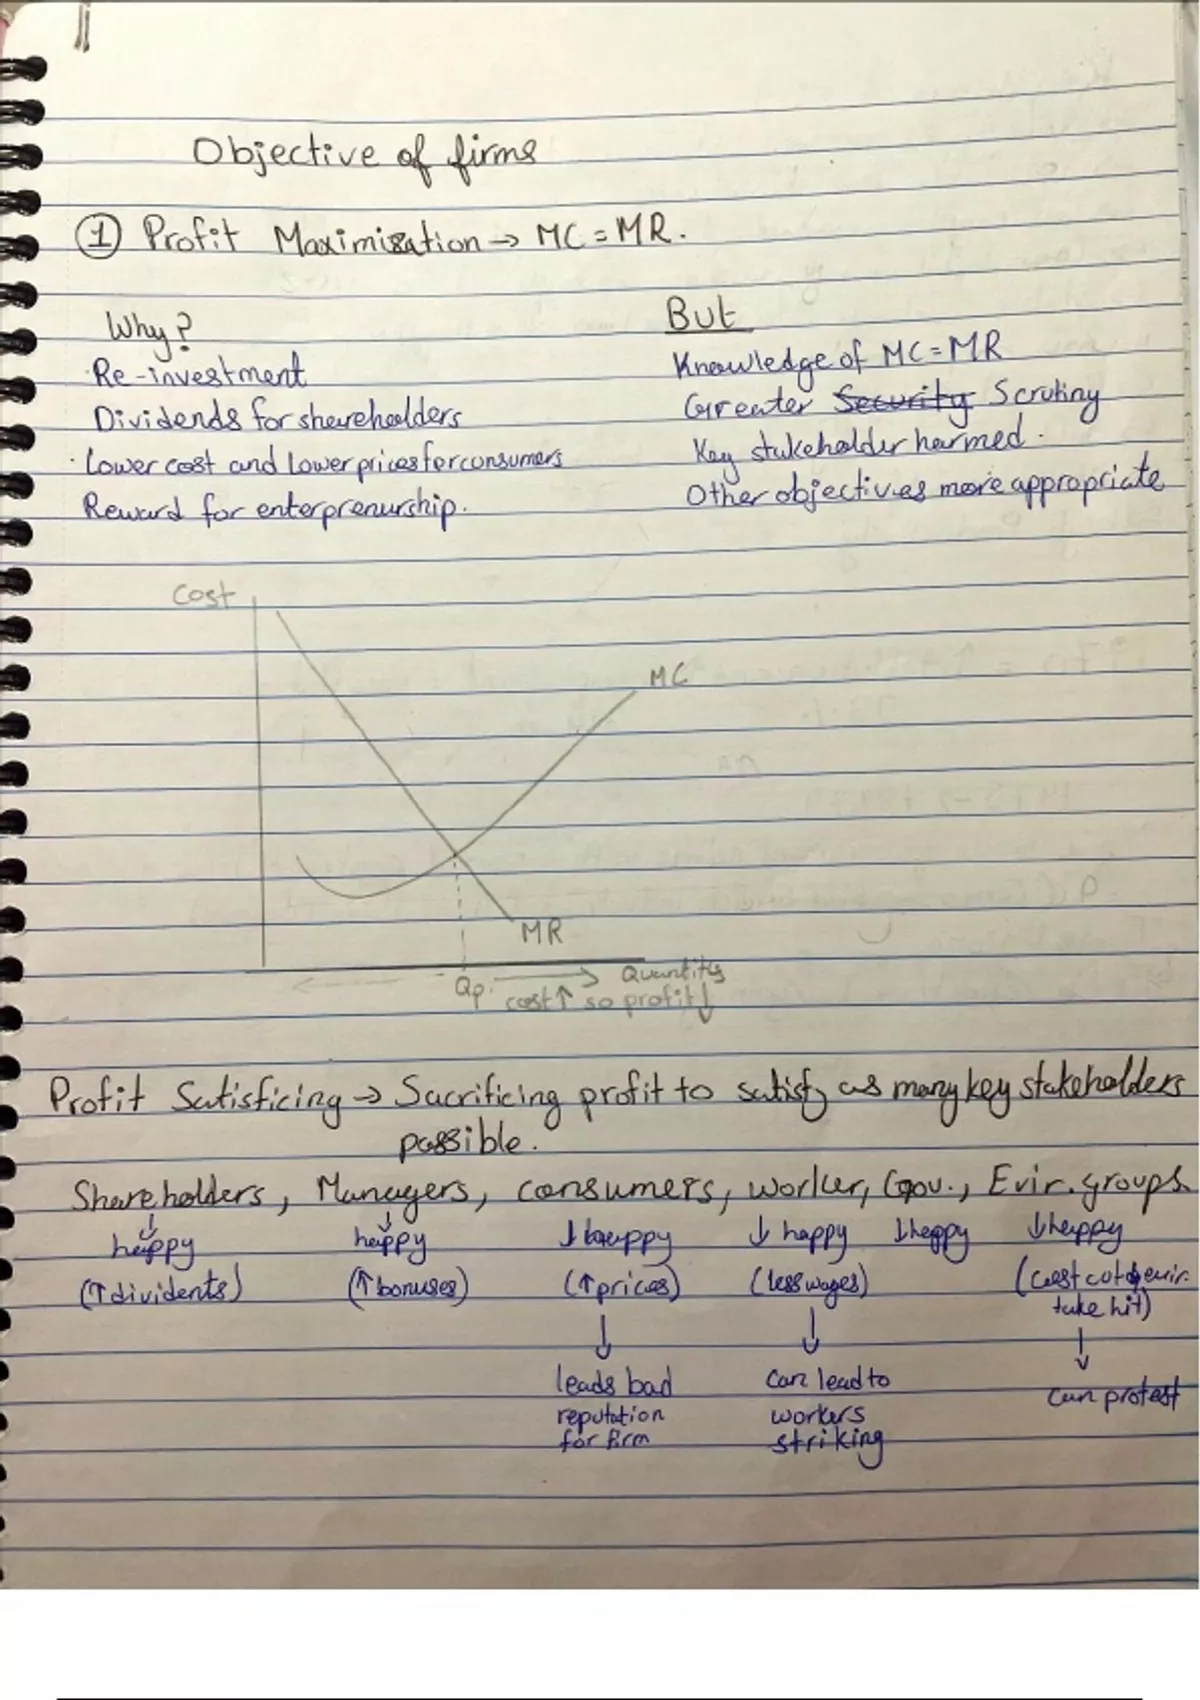 Objective of firms
① Profit Maximisation → MC = MR.
Why?
Re-investment
Dividends for shareholders
· Lower cost and lower prices for consumers
Reward for enterprenurship.
But
Knowledge of MC = MR
Greater Security Scrutiny
Key stakeholder harmed.
Other objectives more appropriate
Cost
MC
MR
Quantity
Qp. → cost↑ so profit↓
Profit Satisficing → Sacrificing profit to satisfy as many key stakeholders
possible.
Shareholders, Managers, consumers, worker, Gov., Evir. groups.
↓ ↓
happy happy ↓ happy ↓ happy ↓ happy ↓ happy
(↑ dividents) (↑ bonuses) (↑ prices) (less wages) (cost cut & evir.
take hit)
↓ ↓ ↓
leads bad can lead to can protest
reputation workers
for firm striking